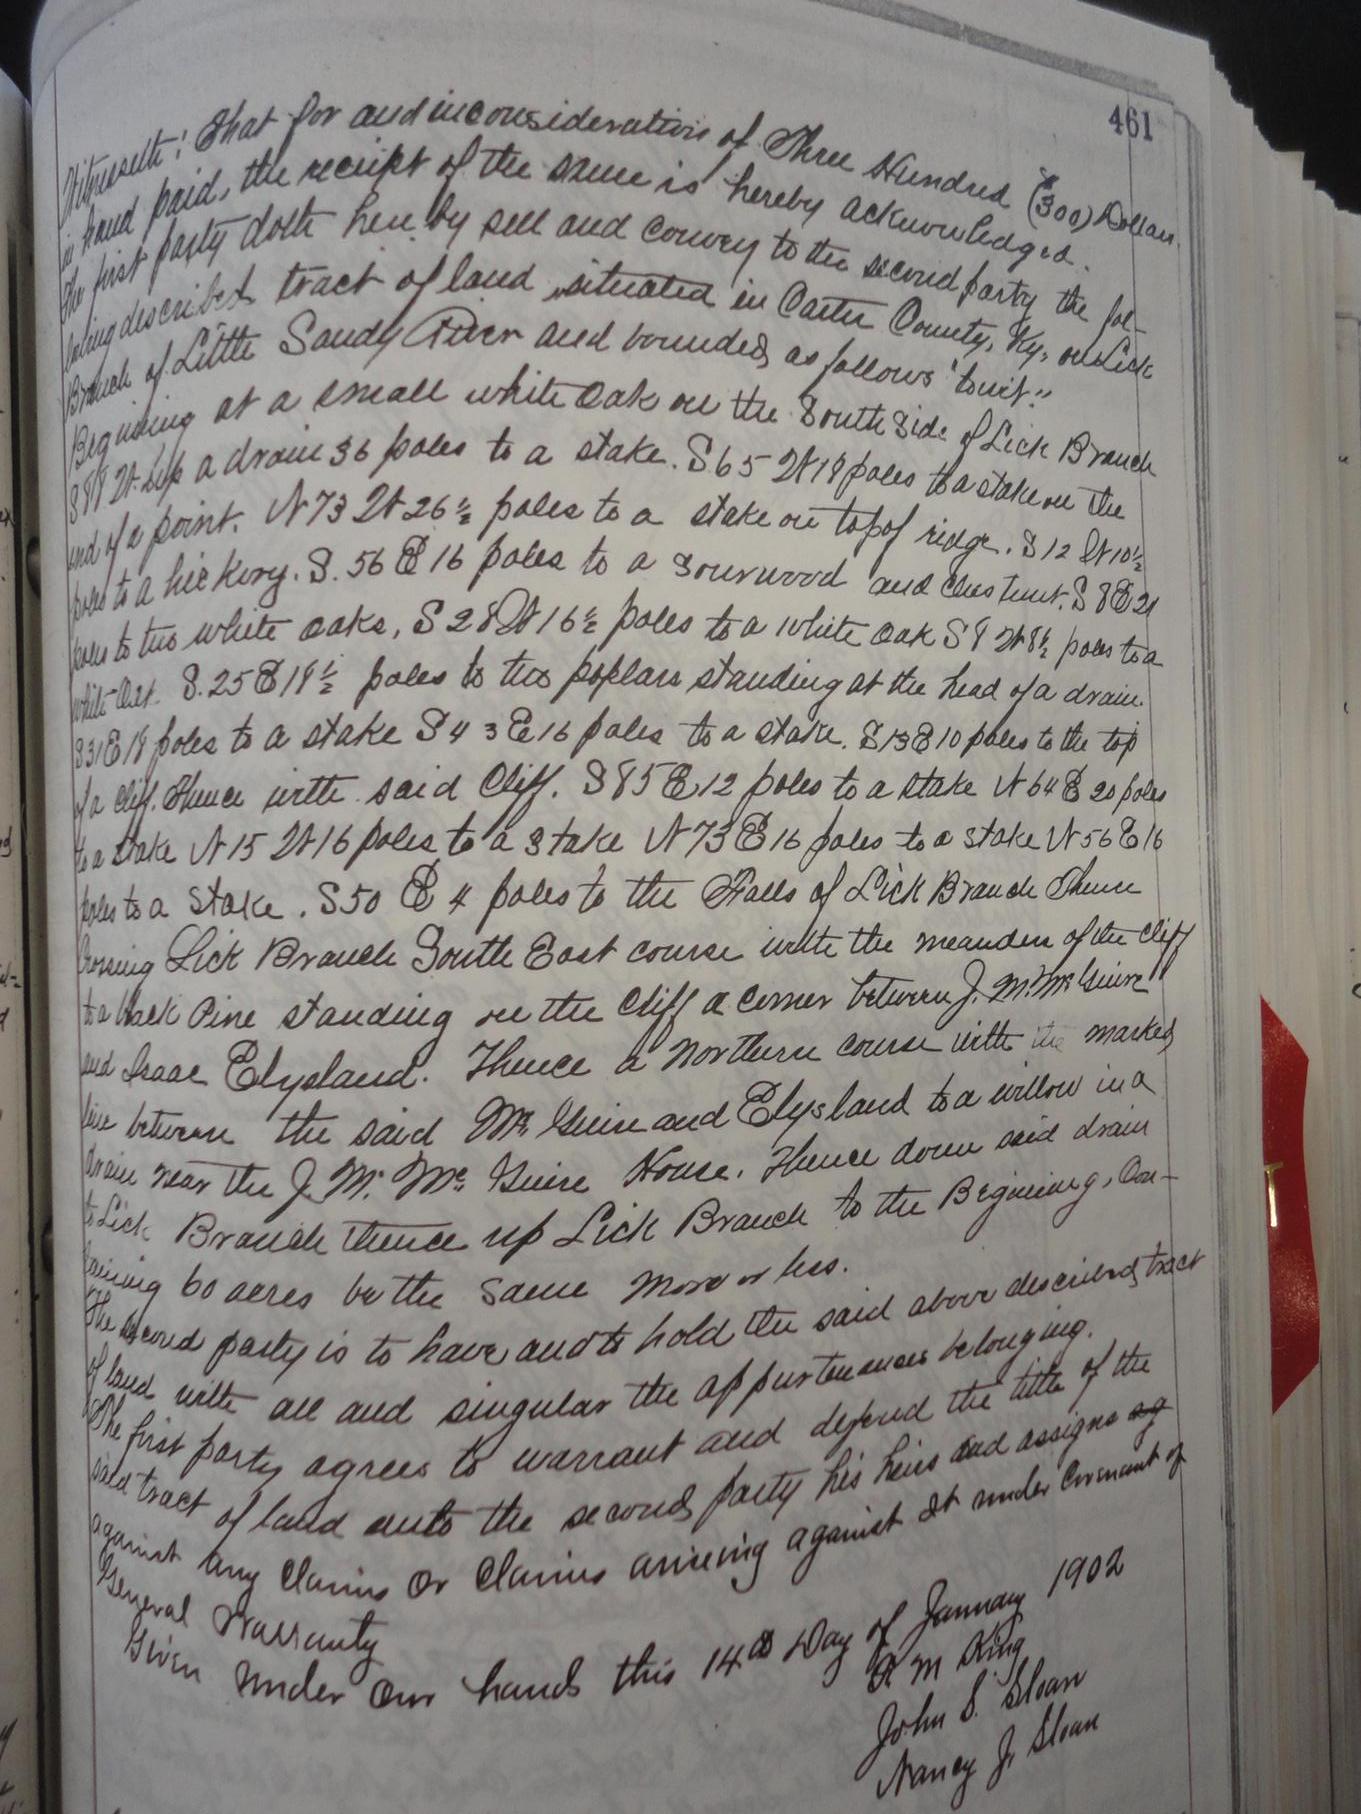 461
Witnesseth: That for and in consideration of Three Hundred ($300) Dollars
in hand paid, the receipt of the same is hereby acknowledged.
The first party doth here by sell and convey to the second party the fol-
lowing described tract of land situated in Carter County, Ky, on Lick
Branch of Little Sandy River and bounded, as follows "towit:"
Begining at a small white Oak on the South Side of Lick Branch
S 88 W. up a drain 36 poles to a stake. S 65 W 18 poles to a stake on the
end of a point. N 73 W 26 1/2 poles to a stake on top of ridge. S 12 W 10 1/2
poles to a hickory. S. 56 E 16 poles to a Sourwood and Chestnut. S 8 E 21
poles to two white oaks, S 28 W 16 1/2 poles to a white Oak S 8 W 8 1/2 poles to a
white Oak. S. 25 E 18 1/2 poles to two poplars standing at the head of a drain.
S 31 E 18 poles to a stake S 43 E 16 poles to a stake. S 13 E 10 poles to the top
of a Cliff. Thence with said Cliff. S 85 E 12 poles to a stake N 64 E 20 poles
to a stake N 15 W 16 poles to a Stake N 73 E 16 poles to a stake N 56 E 16
poles to a Stake. S 50 E 4 poles to the Falls of Lick Branch Thence
Crossing Lick Branch South East course with the meanders of the Cliff
to a black Pine standing on the Cliff a corner between J. M. McGuire
and Isaac Elysland. Thence a northern course with the marked
line between the said McGuire and Elysland to a willow in a
drain near the J. M. McGuire House. Thence down said drain
to Lick Branch thence up Lick Branch to the Begining, Con-
taining 60 acres be the same more or less.
The second party is to have and to hold the said above described tract
of land with all and singular the appurtenances belonging.
The first party agrees to warrant and defend the title of the
said tract of land unto the second party his heirs and assigns ag
against any Claims or Claims arising against it under Covenant of
General Warranty
Given under our hands this 14th Day of January 1902
R M King
John S. Sloan
Nancy J. Sloan